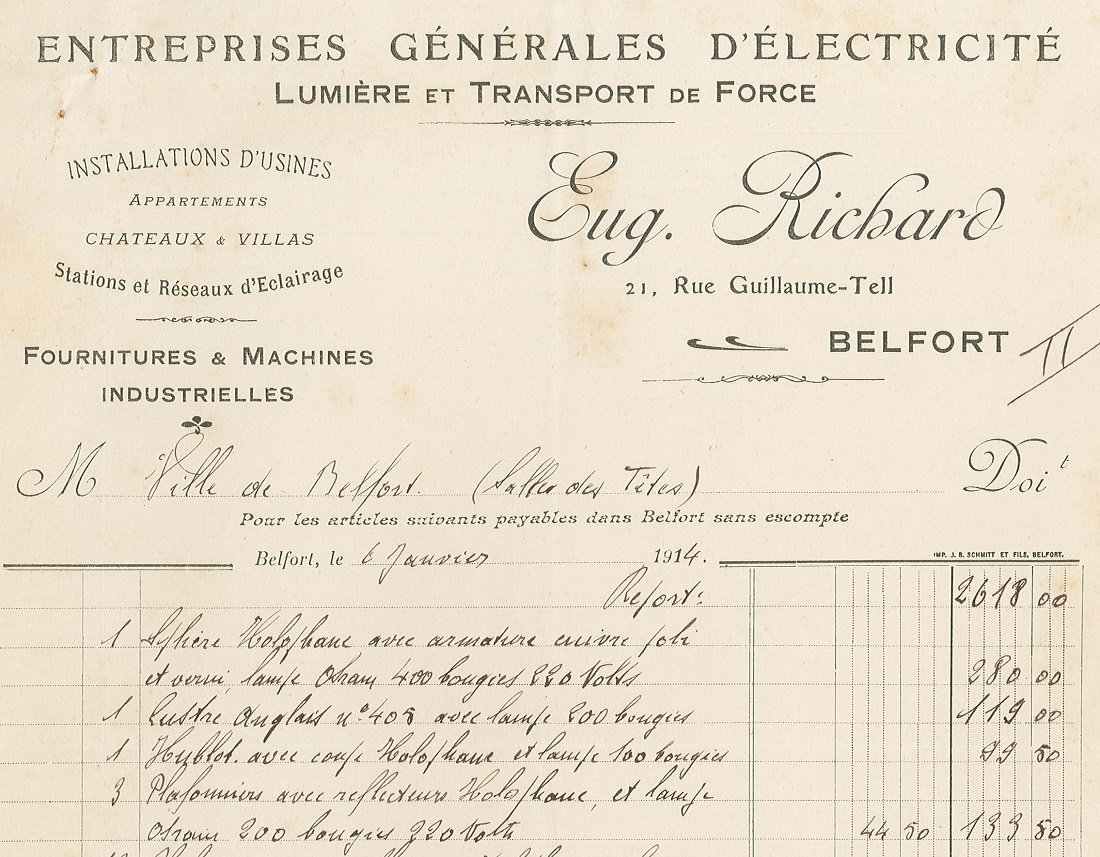 ENTREPRISES GÉNÉRALES D'ÉLECTRICITÉ
LUMIÈRE ET TRANSPORT DE FORCE
INSTALLATIONS D'USINES
APPARTEMENTS
CHATEAUX & VILLAS
Stations et Réseaux d'Eclairage
FOURNITURES & MACHINES
INDUSTRIELLES
Eug. Richard
21, Rue Guillaume-Tell
BELFORT
II
M Ville de Belfort. (Salles des Têtes) Doit
Pour les articles suivants payables dans Belfort sans escompte
Belfort, le 6 Janvier 1914.
IMP. J. B. SCHMITT ET FILS, BELFORT.
Report: 2618 00
1 Sphère Holophane avec armature cuivre poli
et verni, lampe Osram 400 bougies 220 Volts 280 00
1 Lustre Anglais nº 408 avec lampe 200 bougies 119 00
1 Hublot. avec coupe Holophane et lampe 100 bougies 99 50
3 Plafonniers avec reflecteurs Holophane, et lampe
Osram 200 bougies 220 Volts 44 50 133 50